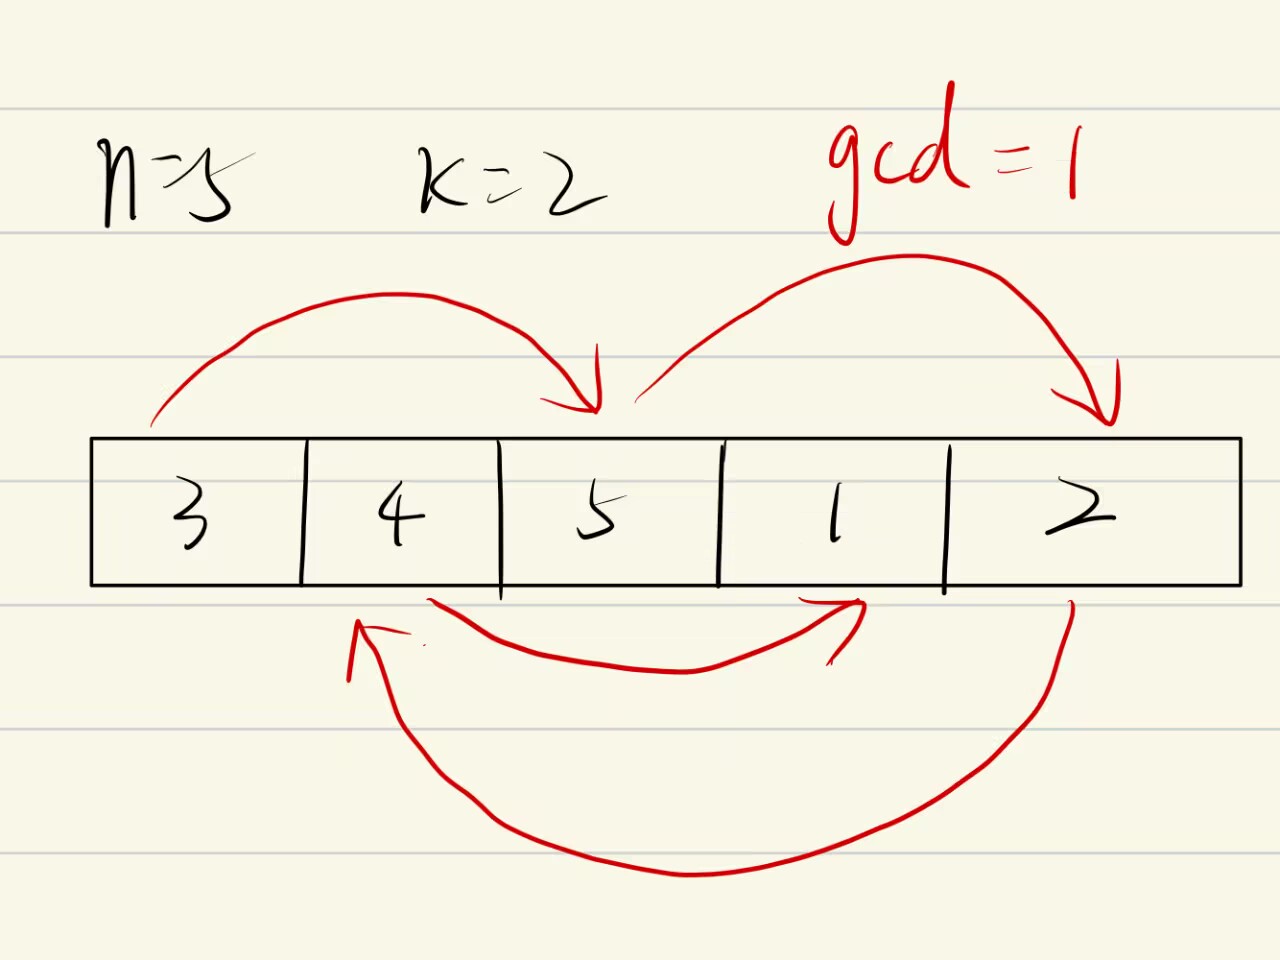 n=5 k=2 gcd=1
3 4 5 1 2